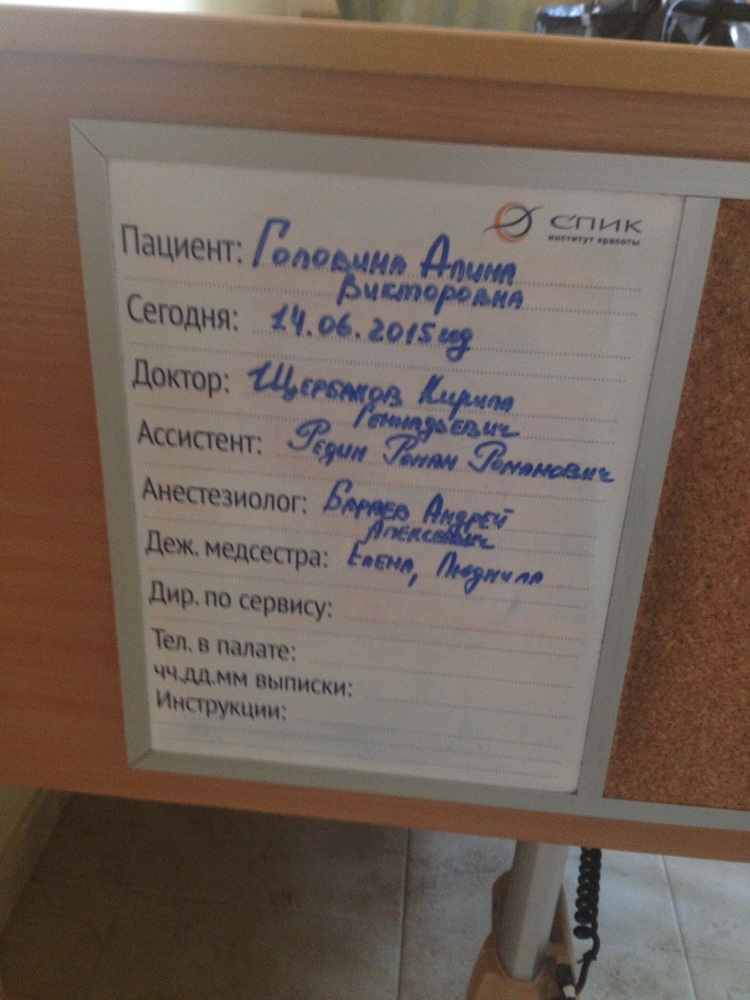 СПИК
институт красоты
Пациент: Головина Алина
Викторовна
Сегодня: 14.06.2015 год
Доктор: Щербаков Кирилл
Геннадьевич
Ассистент: Редин Роман Романович
Анестезиолог: Бараев Андрей
Алексеевич
Деж. медсестра: Елена, Людмила
Дир. по сервису:
Тел. в палате:
чч.дд.мм выписки:
Инструкции: